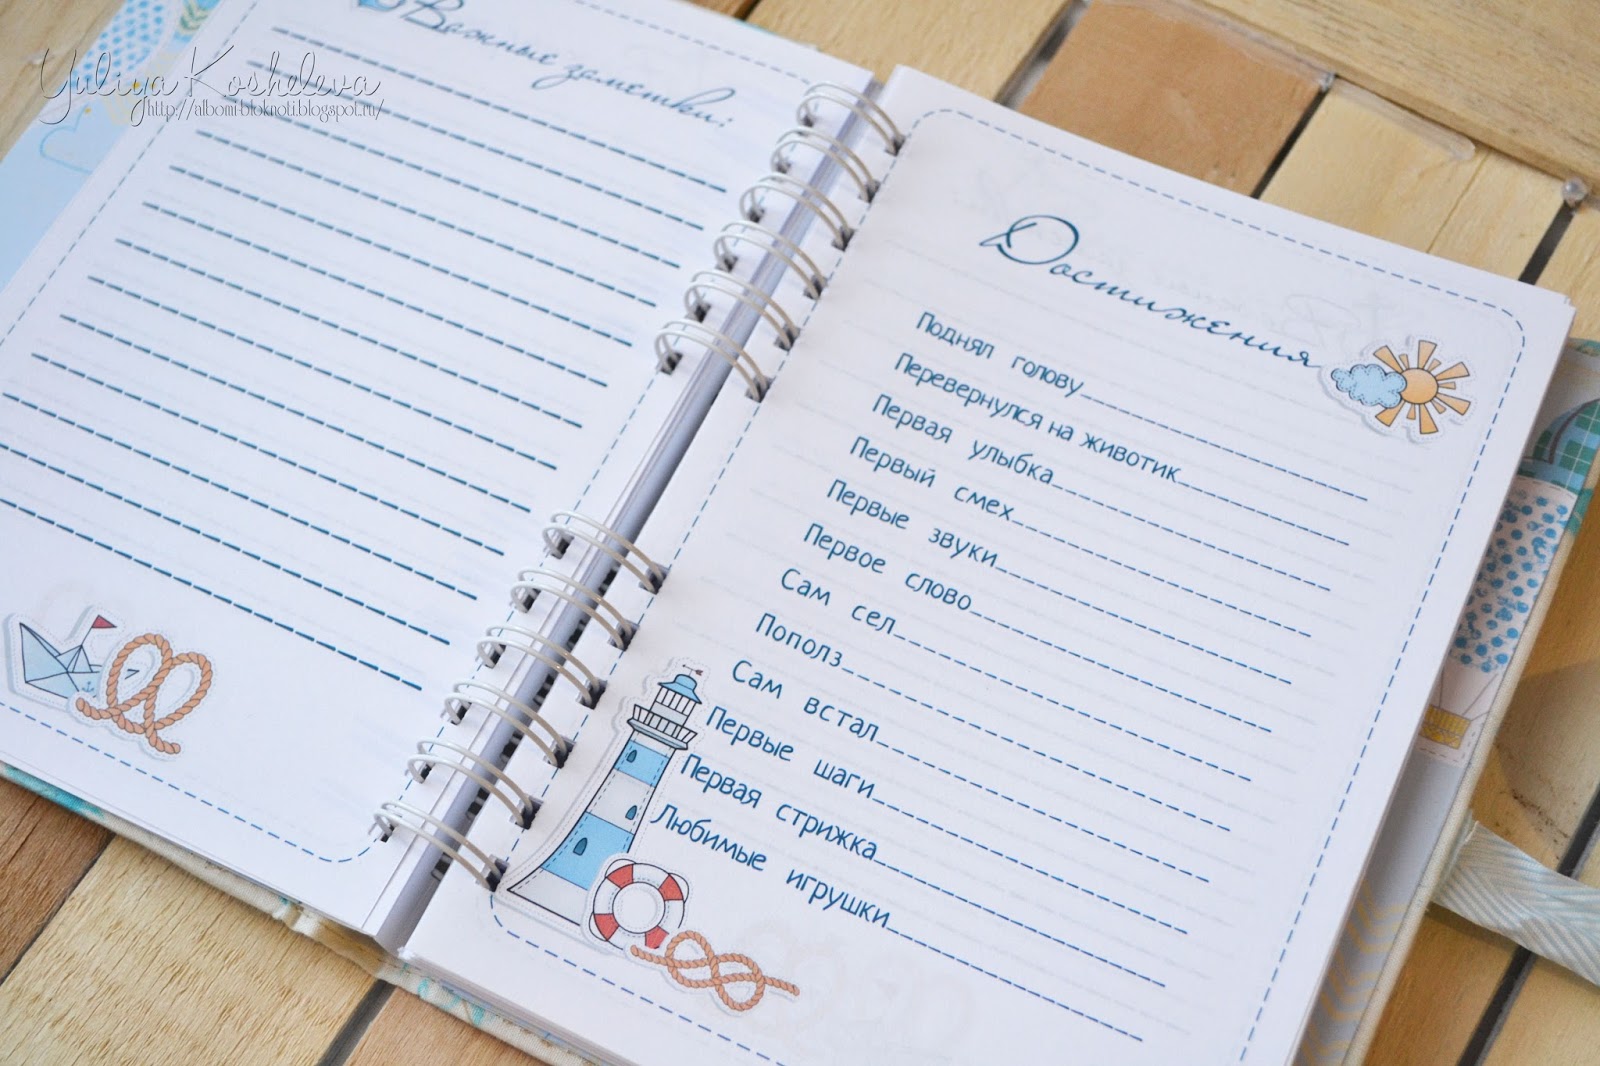 Yuliya Kosheleva
http://albomi-bloknoti.blogspot.ru/
Важные заметки:
Достижения
Поднял голову
Перевернулся на животик
Первая улыбка
Первый смех
Первые звуки
Первое слово
Сам сел
Пополз
Сам встал
Первые шаги
Первая стрижка
Любимые игрушки